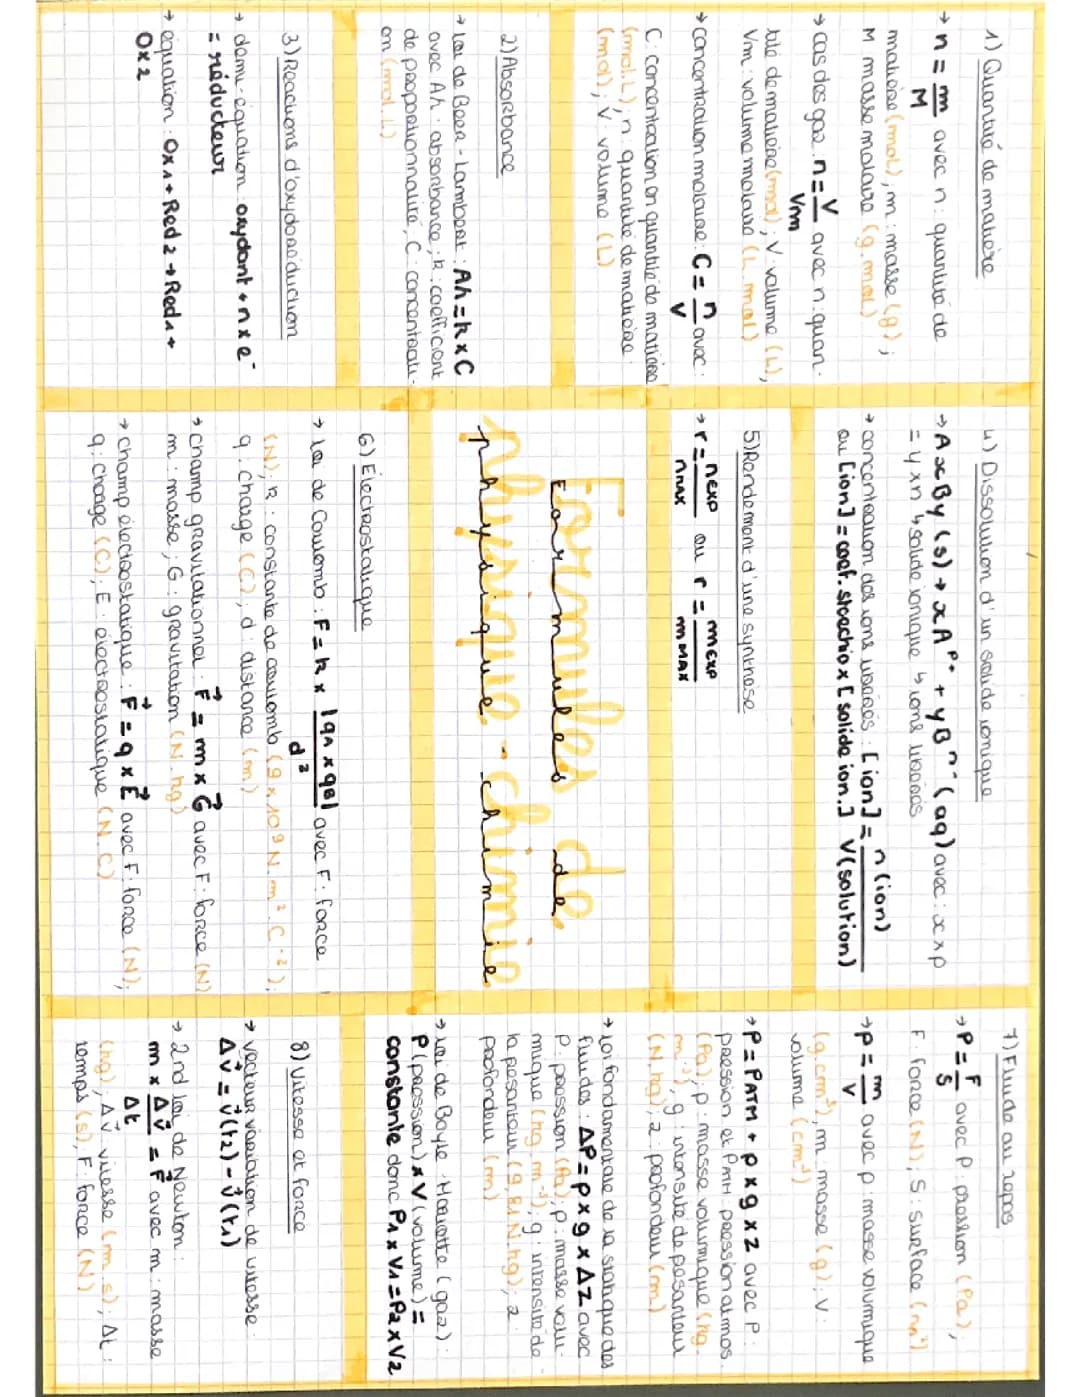 1) Quantité de matière
→ n = m/M avec n : quantité de
matière (mol) ; m : masse (g) ;
M masse molaire (g.mol)
→ cas des gaz : n = V/Vm avec n : quan-
tité de matière (mol) ; V volume (L),
Vm : volume molaire (L.mol)
→ concentration molaire : C = n/V avec :
C : concentration en quantité de matière
(mol.L) ; n : quantité de matière
(mol) ; V : volume (L)
2) Absorbance
→ Loi de Beer-Lambert : Aλ = k x C
avec Aλ : absorbance ; k : coefficient
de proportionnalité ; C : concentrati-
on (mol.L)
3) Réactions d'oxydoréduction
→ demi-équation oxydant + n x e⁻
= réducteur
→ équation : Ox1 + Red2 → Red1 +
Ox2
4) Dissolution d'un solide ionique
→ AxBy (s) → xAᵖ⁺ + yBⁿ⁻ (aq) avec : x x p
= y x n ↳ solide ionique ↳ ions libérés
→ concentration des ions libérés : [ion] = n(ion)/V(solution)
ou [ion] = coef. stoechio x [solide ion.]
5) Rendement d'une synthèse
→ r = nexp/nmax ou r = mexp/mmax
Formules de
physique-chimie
6) Électrostatique
→ Loi de Coulomb : F = k x |qA x qB|/d² avec F : force
(N) ; k : constante de coulomb (9 x 10⁹ N.m².C⁻²) ;
q : charge (C) ; d : distance (m)
→ champ gravitationnel : F⃗ = m x G⃗ avec F : force (N)
m : masse ; G : gravitation (N.kg)
→ champ électrostatique : F⃗ = q x E⃗ avec F : force (N) ;
q : charge (C) ; E : électrostatique (N.C)
7) Fluide au repos
→ P = F/S avec P : pression (Pa) ;
F : force (N) ; S : surface (m²)
→ ρ = m/V avec ρ : masse volumique
(g.cm⁻³), m : masse (g) ; V :
volume (cm³)
→ P = PATM + ρ x g x z avec P :
pression et PATM pression atmos.
(Pa) ; ρ : masse volumique (kg.
m⁻³), g : intensité de pesanteur
(N.kg) ; z : profondeur (m)
→ Loi fondamentale de la statique des
fluides : ΔP = ρ x g x ΔZ avec
P : pression (Pa) ; ρ : masse volu-
mique (kg.m⁻³) ; g : intensité de
la pesanteur (9,81 N.kg) ; z :
profondeur (m)
→ Loi de Boyle-Mariotte (gaz) :
P (pression) x V (volume) =
constante donc P1 x V1 = P2 x V2
8) Vitesse et force
→ vecteur variation de vitesse :
Δv⃗ = v⃗(t2) - v⃗(t1)
→ 2nd loi de Newton :
m x Δv⃗/Δt = F⃗ avec m : masse
(kg) ; Δv⃗ vitesse (m.s) ; Δt :
temps (s), F : force (N)